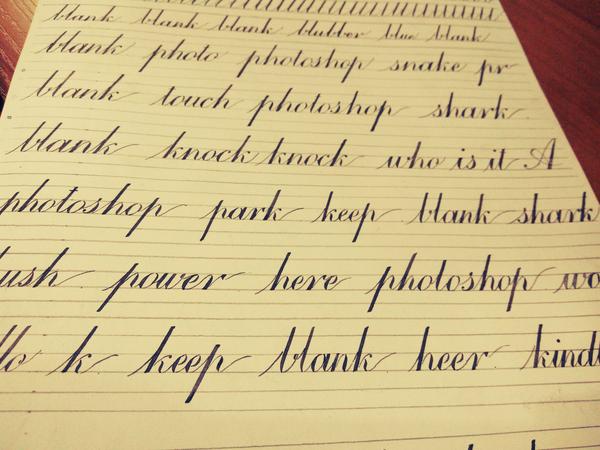 blank blank blank blubber blue blank
blank photo photoshop snake pr
blank touch photoshop shark
blank knock knock who is it A
photoshop park keep blank shark
ush power here photoshop wo
llo k keep blank heer kindl